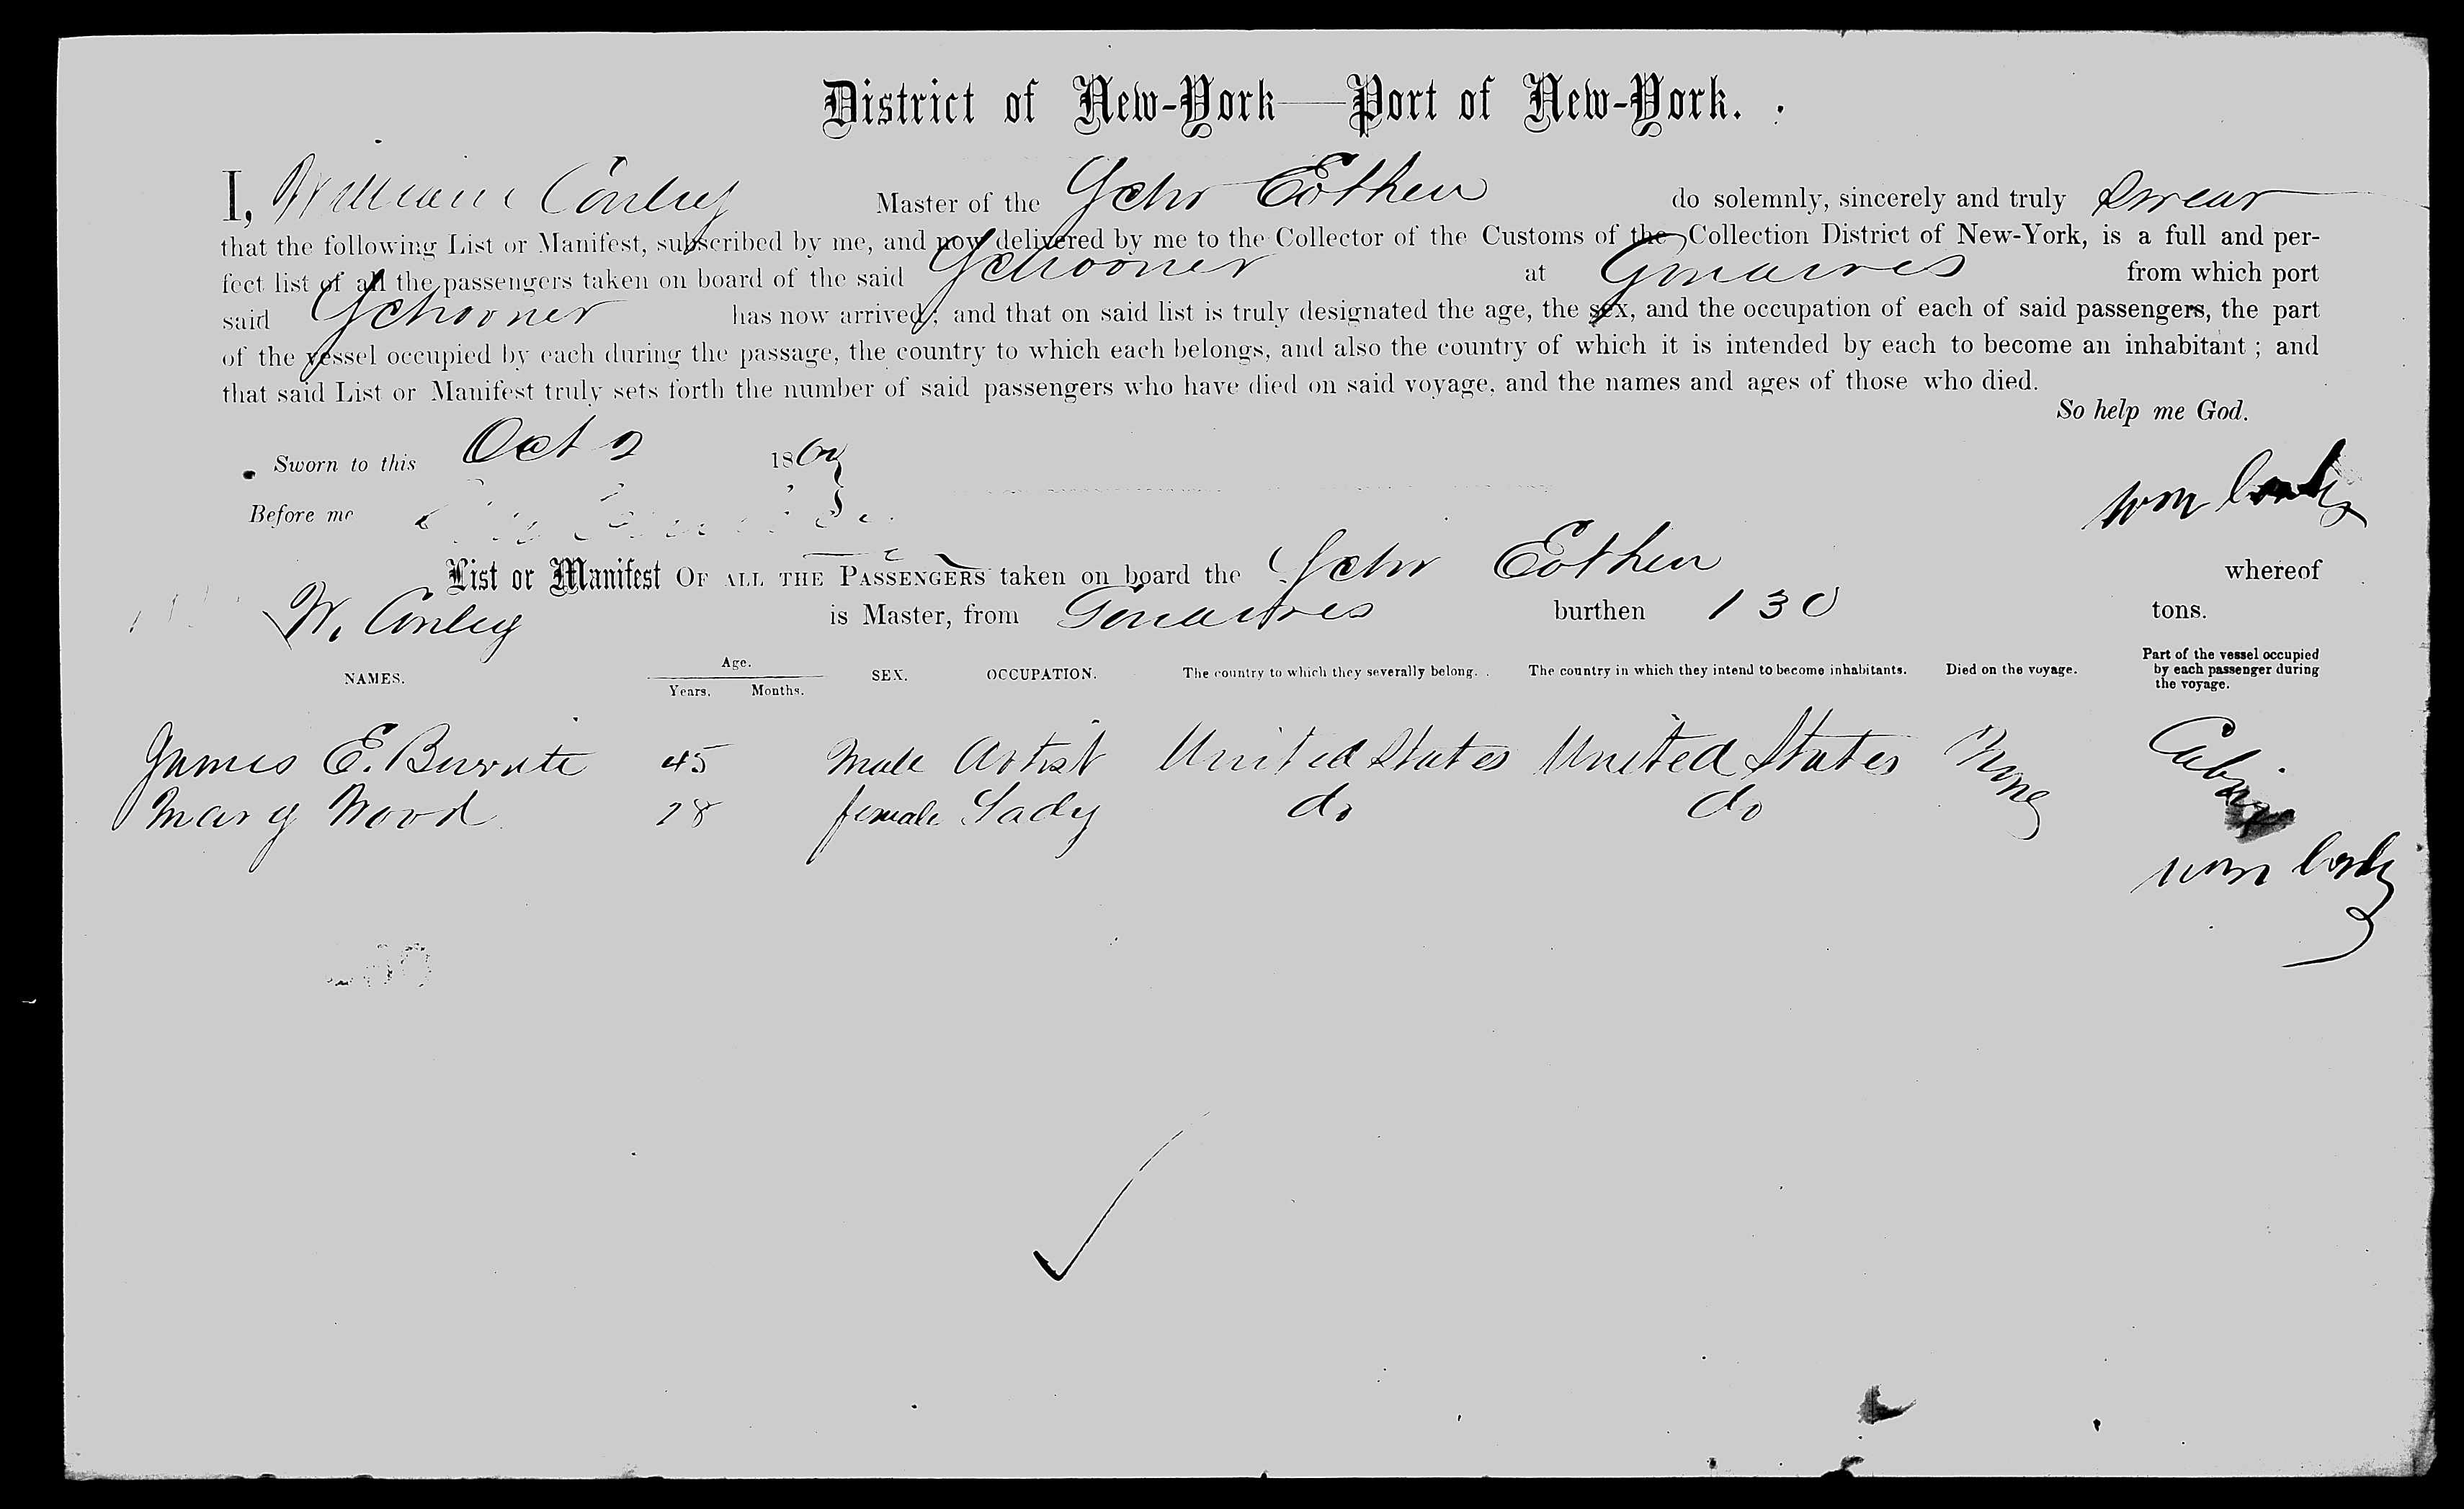 District of New-York—Port of New-York.
I, William Conley Master of the Schr Eothen do solemnly, sincerely and truly swear
that the following List or Manifest, subscribed by me, and now delivered by me to the Collector of the Customs of the Collection District of New-York, is a full and per-
fect list of all the passengers taken on board of the said Schooner at Gonaives from which port
said Schooner has now arrived; and that on said list is truly designated the age, the sex, and the occupation of each of said passengers, the part
of the vessel occupied by each during the passage, the country to which each belongs, and also the country of which it is intended by each to become an inhabitant; and
that said List or Manifest truly sets forth the number of said passengers who have died on said voyage, and the names and ages of those who died.
So help me God.
Sworn to this Oct 2 186
Before me
Wm Conley
List or Manifest OF ALL THE PASSENGERS taken on board the Schr Eothen whereof
W. Conley is Master, from Gonaives burthen 130 tons.
NAMES. Age. Years. Months. SEX. OCCUPATION. The country to which they severally belong. The country in which they intend to become inhabitants. Died on the voyage. Part of the vessel occupied by each passenger during the voyage.
James E. 45 Male Artist United States United States None Cabin
Mary Wood 28 female Lady do do
Wm Conley